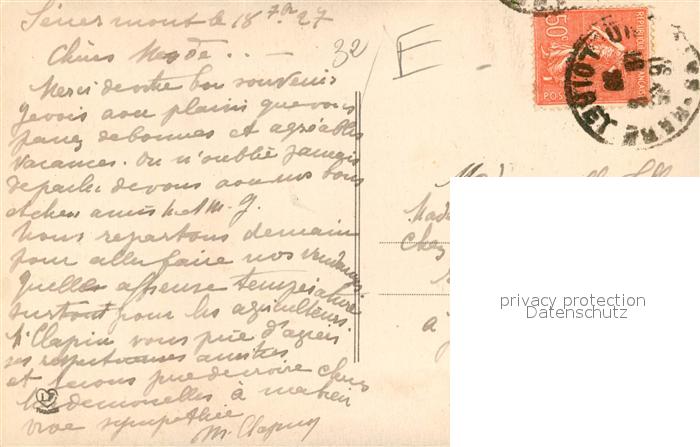 le 18 7bre 27
Chères Mesd
32
E
Merci de votre bon souvenir
je vois avec plaisir que vous
passez de bonnes et agréables
vacances. On n'oublie jamais
de parler de vous avec nos bons
et chers amis M. et Mme G.
Nous repartons demain
pour aller faire nos vendanges.
Quelle affreuse température
surtout pour les agriculteurs.
Mr Clapin vous prie d'agréer
ses respectueuses amitiés,
et je vous prie de croire chères
Mesdemoiselles à ma bien
vive sympathie
M. Clapin
50c
REPUBLIQUE FRANÇAISE
POSTES
LOIRET
Made
Chez
à
privacy protection
Datenschutz